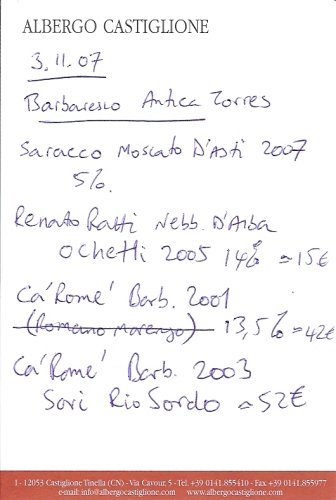 ALBERGO CASTIGLIONE
3.11.07
Barbaresco Antica Torres
Saracco Moscato D'Asti 2007
5%.
Renato Ratti Nebb. D'Alba
Ochetti 2005 14% ≈15€
Ca'Rome' Barb. 2001
(Romano Marengo) 13,5% ≈42€
Ca'Rome' Barb. 2003
Sori Rio Sordo ≈52€
I - 12053 Castiglione Tinella (CN) - Via Cavour, 5 - Tel. +39 0141.855410 - Fax +39 0141.855977
e-mail: info@albergocastiglione.com - www.albergocastiglione.com